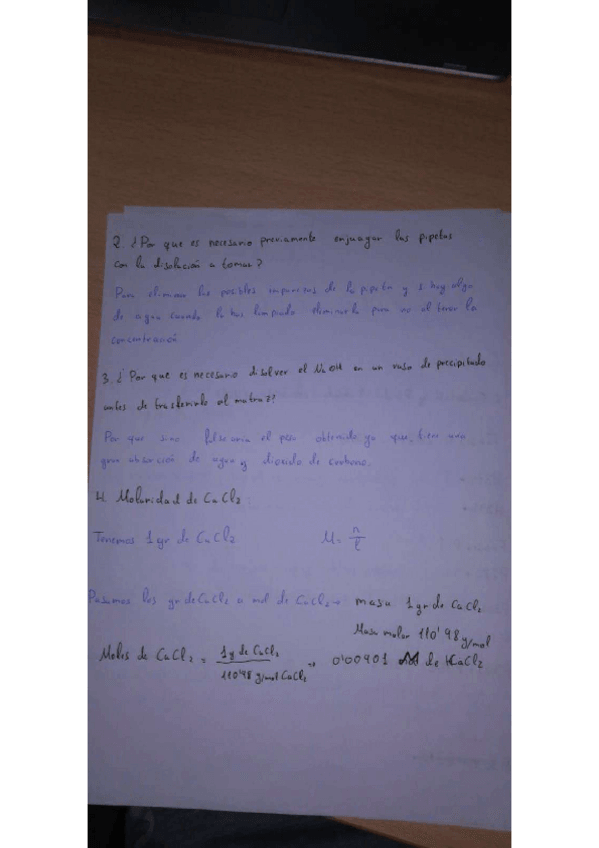 2. ¿Por que es necesario previamente enjuagar las pipetas
con la disolución a tomar?
Para eliminar las posibles impurezas de la pipeta y si hay algo
de agua cuando la has limpiado eliminarla para no alterar la
concentración
3. ¿Por que es necesario disolver el NaOH en un vaso de precipitado
antes de trasferirlo al matraz?
Por que sino falsearia el peso obtenido ya que, tiene una
gran absorción de agua y dioxido de carbono.
4. Molaridad de CaCl2:
Tenemos 1gr de CaCl2 M = n/l
Pasamos los gr de CaCl2 a mol de CaCl2 → masa 1gr de CaCl2
Masa molar 110'98 g/mol
Moles de CaCl2 = 1g de CaCl2 / 110'98 g/mol CaCl2 = 0'00901 de CaCl2